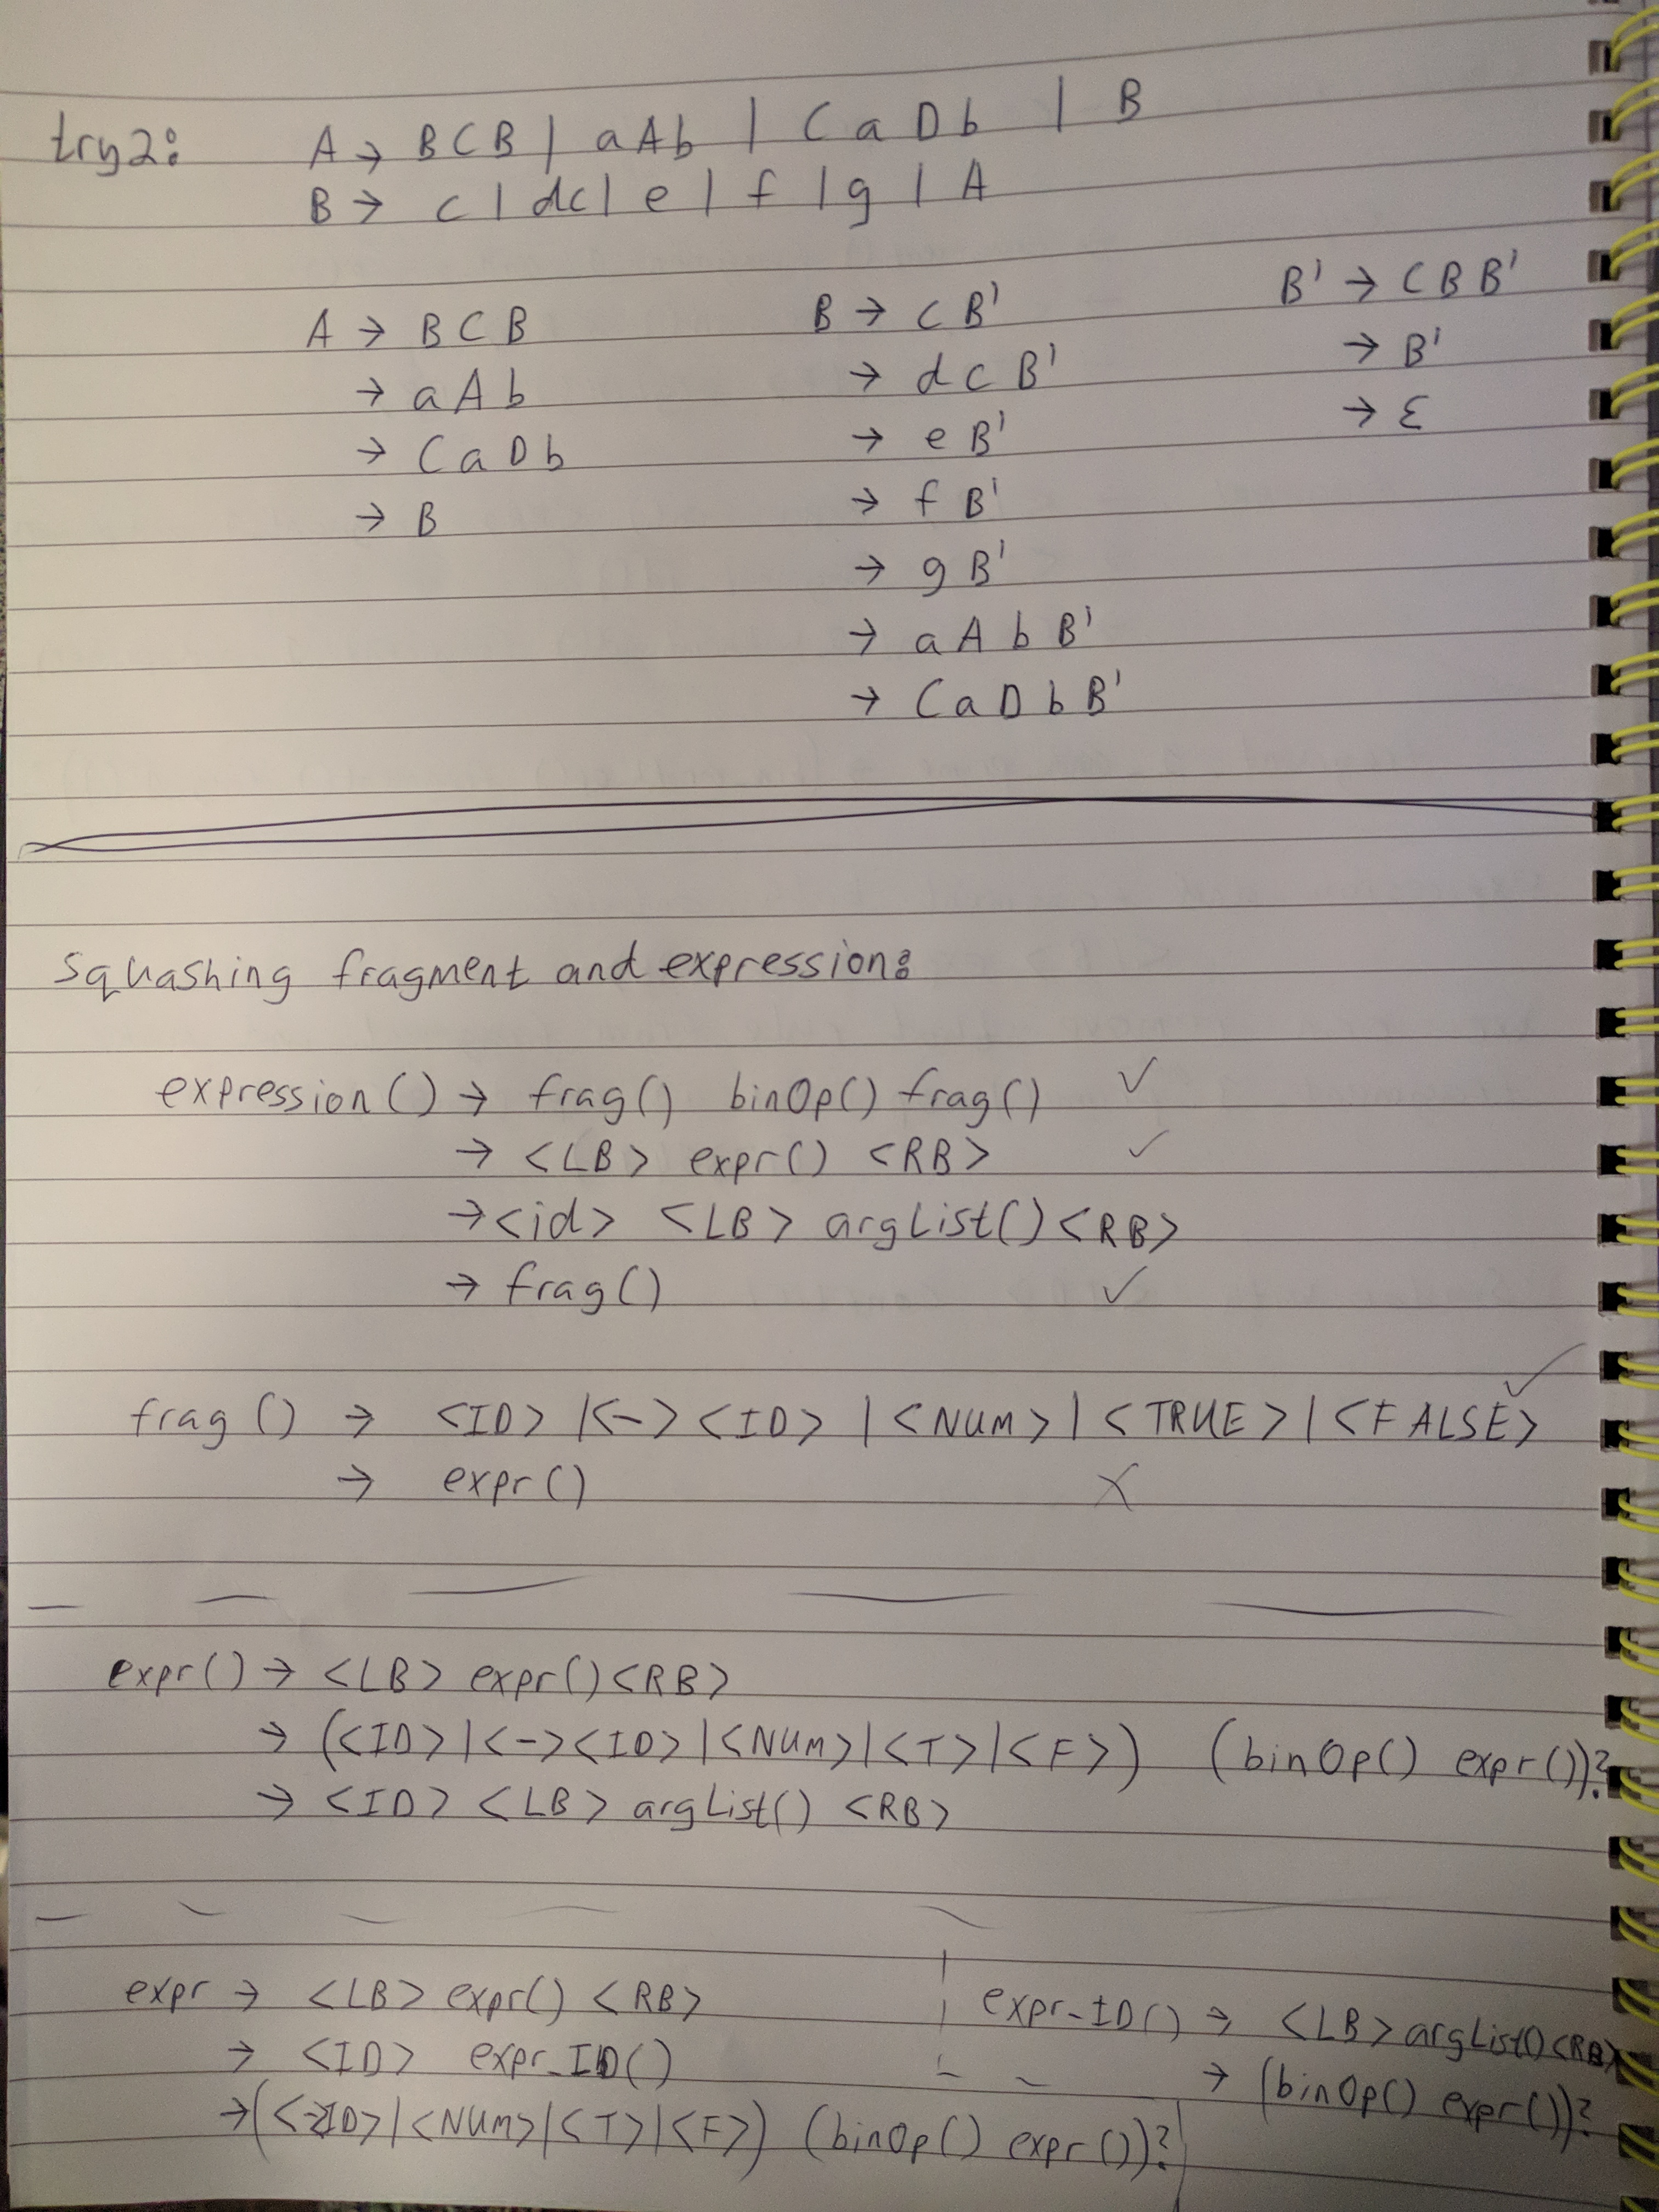 try2: A → BCB | aAb | CaDb | B
B → c | dc | e | f | g | A
A → B C B
→ a A b
→ C a D b
→ B
B → c B'
→ d c B'
→ e B'
→ f B'
→ g B'
→ a A b B'
→ C a D b B'
B' → C B B'
→ B'
→ ε
Squashing fragment and expression:
expression() → frag() binOp() frag() ✓
→ <LB> expr() <RB> ✓
→ <id> <LB> argList() <RB>
→ frag() ✓
frag() → <ID> | <-> <ID> | <NUM> | <TRUE> | <FALSE> ✓
→ expr() X
expr() → <LB> expr() <RB>
→ (<ID> | <-><ID> | <NUM> | <T> | <F>) (binOp() expr())?
→ <ID> <LB> argList() <RB>
expr → <LB> expr() <RB>
→ <ID> expr_ID()
→ (<-ID> | <NUM> | <T> | <F>) (binOp() expr())?
expr_ID() → <LB> argList() <RB>
→ (binOp() expr())?